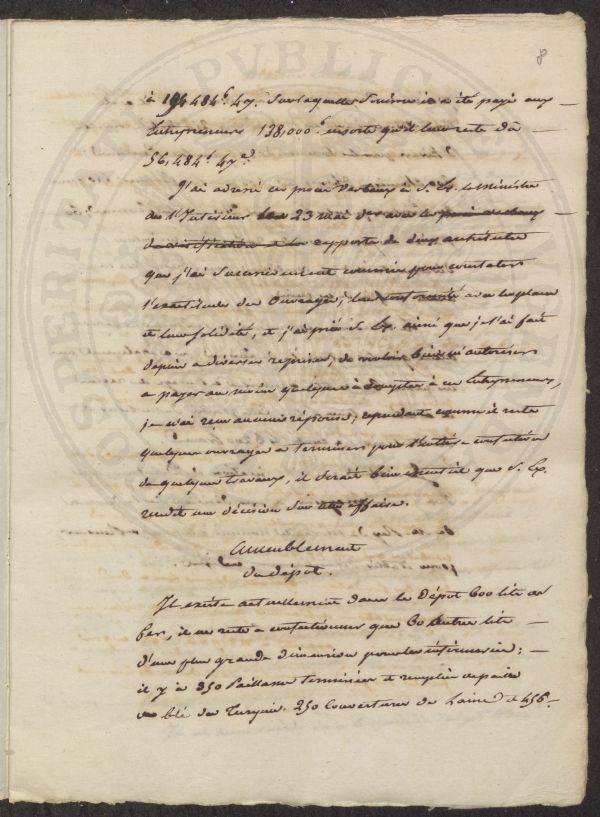 8
à 194 484f 47. Sur laquelle Somme il a été payé aux
Entrepreneurs 138,000f ensorte qu'il leur reste dû
56,484f 47c.
J'ai adressé ces procès verbaux à S. Ex. le Ministre
de l'Intérieur le 23 mai der avec les
rapports de deux architectes
que j'ai successivement commis pour constater
l'exactitude des Ouvrages, leur conformité avec les plans
et leur solidité, et j'ai prié S. Ex. ainsi que je l'ai fait
depuis à diverses reprises, de vouloir bien m'autoriser
à payer au moins quelque à compte à ces Entrepreneurs,
je n'ai reçu aucune réponse; cependant comme il reste
quelques ouvrages à terminer pour l'entière confection
de quelques travaux, il serait bien essentiel que S. Ex.
rendit une décision sur cette affaire.
Ameublement
du dépôt.
Il existe actuellement dans le Dépôt 600 lits en
fer, il ne reste à confectionner que 60 autres lits
d'une plus grande dimension pour les infirmeries;
il y a 350 Paillasses terminées et remplies de paille
de blé de Turquie. 250 Couvertures de Laine et 456